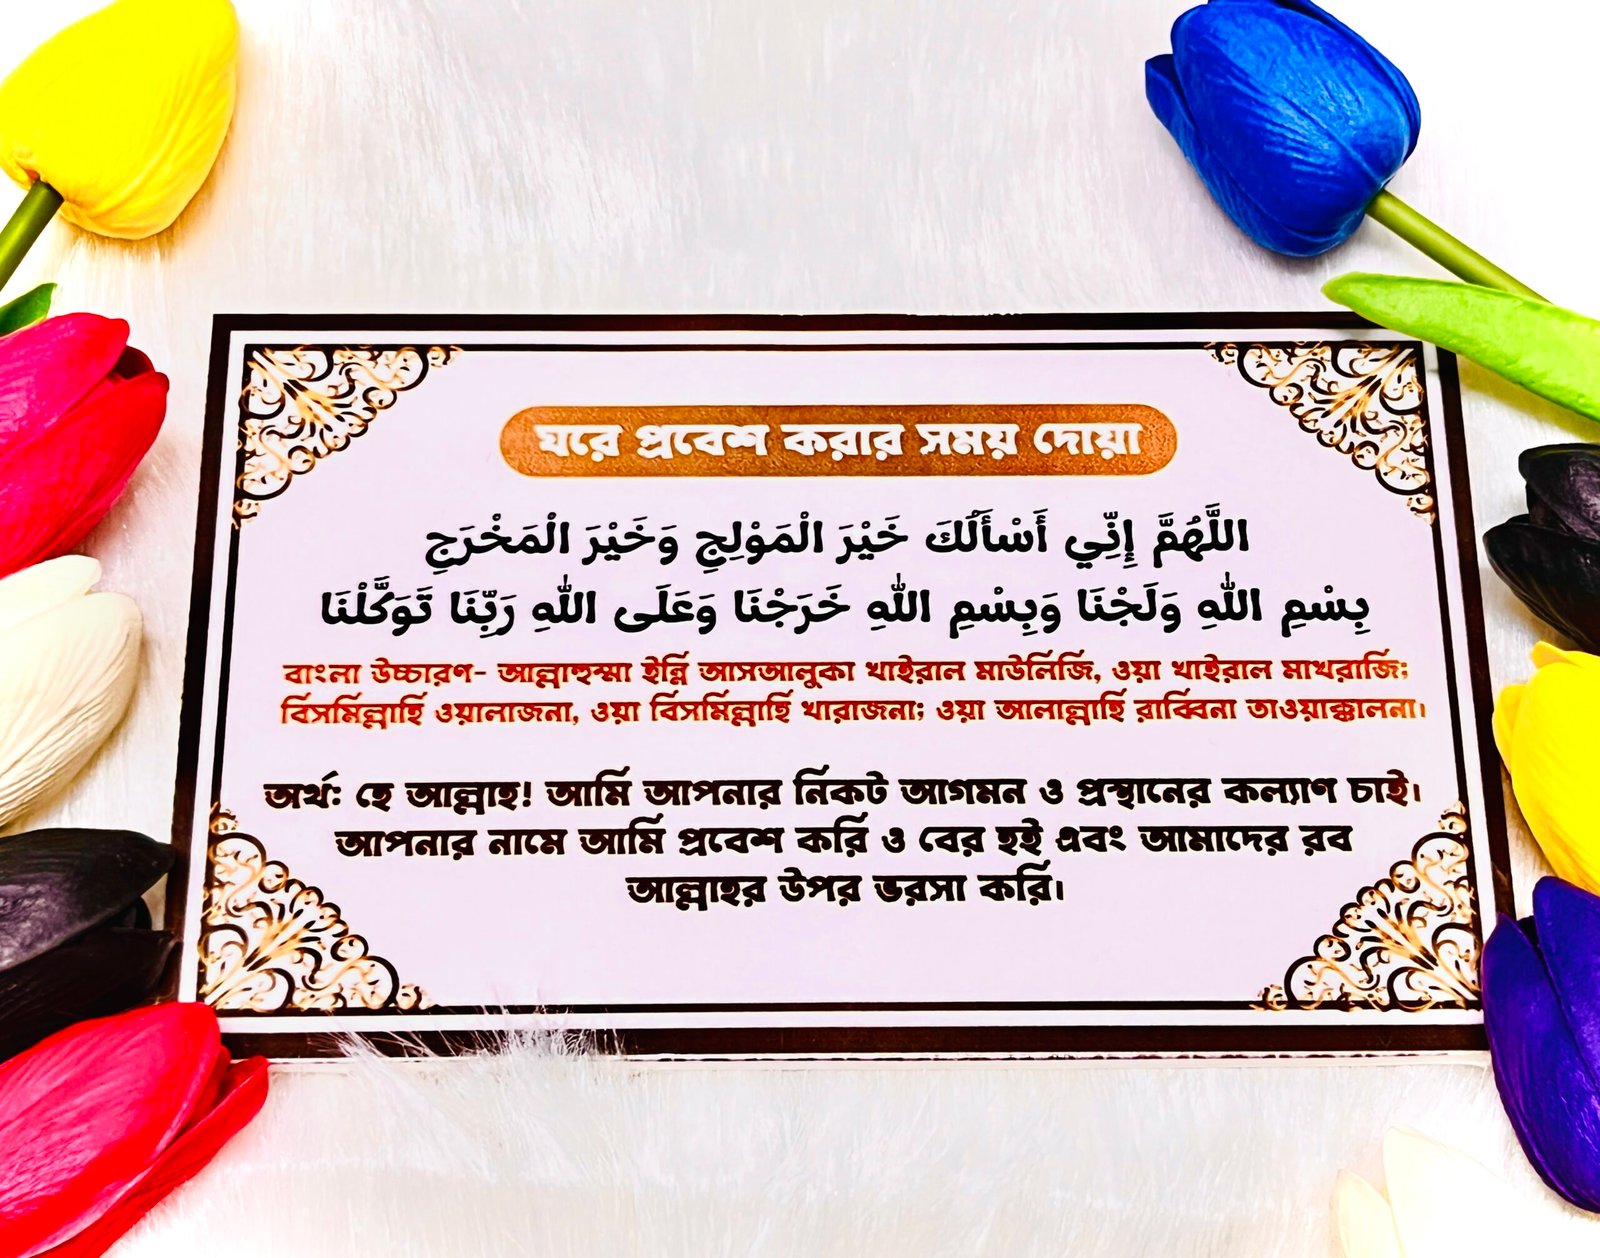 ঘরে প্রবেশ করার সময় দোয়া
اللَّهُمَّ إِنِّي أَسْأَلُكَ خَيْرَ الْمَوْلِجِ وَخَيْرَ الْمَخْرَجِ
بِسْمِ اللَّهِ وَلَجْنَا وَبِسْمِ اللَّهِ خَرَجْنَا وَعَلَى اللَّهِ رَبِّنَا تَوَكَّلْنَا
বাংলা উচ্চারণ- আল্লাহুম্মা ইন্নি আসআলুকা খাইরাল মাউলিজি, ওয়া খাইরাল মাখরাজি;
বিসমিল্লাহি ওয়ালাজনা, ওয়া বিসমিল্লাহি খারাজনা; ওয়া আলাল্লাহি রাব্বিনা তাওয়াক্কালনা।
অর্থ: হে আল্লাহ! আমি আপনার নিকট আগমন ও প্রস্থানের কল্যাণ চাই।
আপনার নামে আমি প্রবেশ করি ও বের হই এবং আমাদের রব
আল্লাহর উপর ভরসা করি।